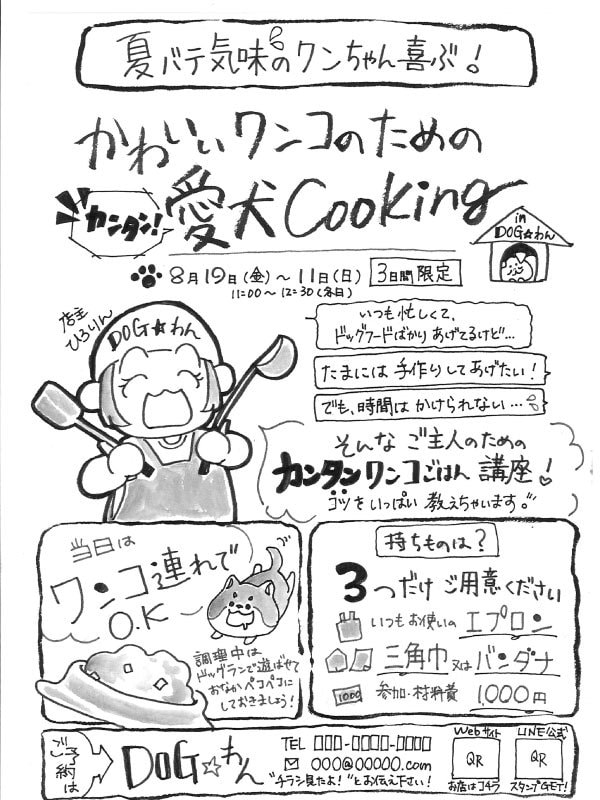 夏バテ気味のワンちゃん喜ぶ!
かわいいワンコのための
カンタン!
愛犬Cooking
in
DOG☆わん
8月19日(金)～11日(日)
3日間限定
11:00～12:30(各日)
店主
ひろりん
DOG☆わん
いつも忙しくて、
ドッグフードばかりあげてるけど…
たまには手作りしてあげたい!
でも、時間はかけられない…
そんなご主人のための
カンタンワンコごはん講座!
コツをいっぱい教えちゃいます!!
当日は
ワンコ連れで
O.K
調理中は
ドッグランで遊ばせて
おなかペコペコに
しておきましょう!
持ちものは?
3つだけご用意ください
いつもお使いのエプロン
三角巾又はバンダナ
1000
参加・材料費 1,000円
ご予約は
DOG☆わん
TEL 000-0000-0000
000@00000.com
"チラシ見たよ!"とお伝え下さい!
Webサイト
QR
お店はコチラ
LINE公式
QR
スタンプGET!